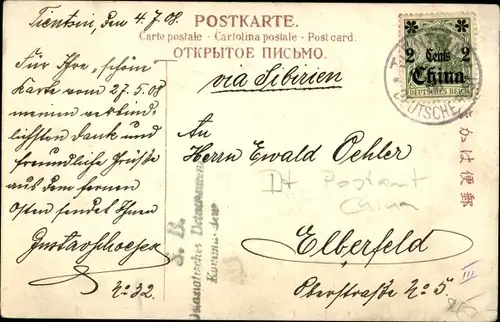 Tientsin, den 4/7.08.
POSTKARTE.
Carte postale - Cartolina postale - Post card.
ОТКРЫТОЕ ПИСЬМО.
Für Ihre „schön"
Karte vom 27.5.08
meinen verbind-
lichsten Dank und
freundliche Grüße
aus dem fernen
Osten sendet Ihnen
Gustav
No 32.
via Sibirien
An
Herrn Ewald Oehler
Dt Postamt
China
Elberfeld
Oberstraße No 5.
III
S. B.
Ostasiatisches Detachement
2 Cents 2
China
DEUTSCHES REICH
DEUTSCHE
きかは便郵